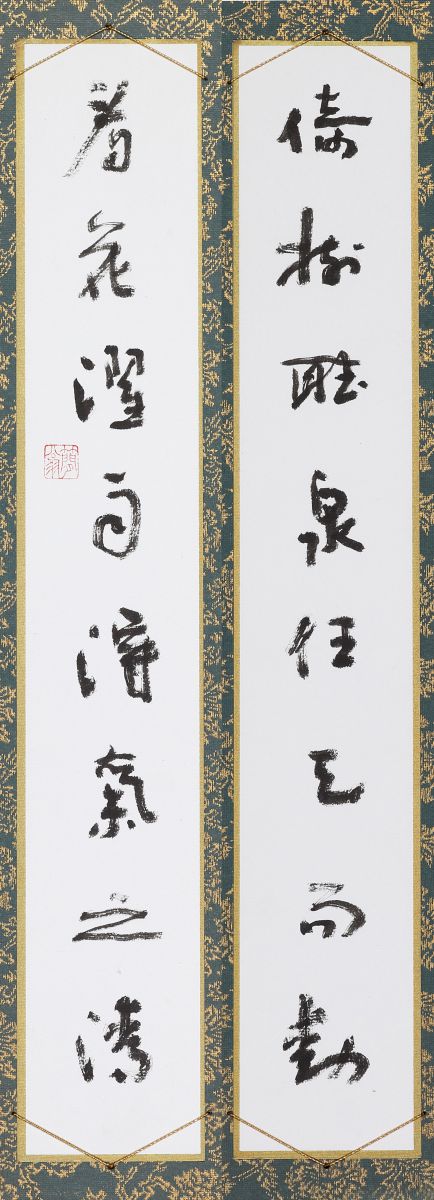 倚樹聽泉任天而動
看花濯月得氣之清